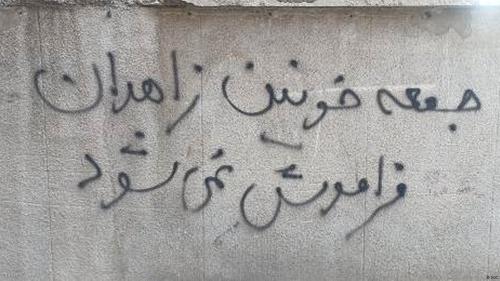 جمعه خونین زاهدان
فراموش نمی شود